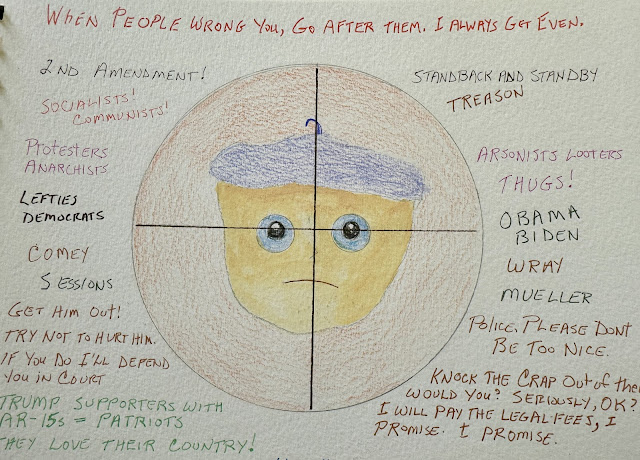 When People Wrong You, Go After Them. I Always Get Even.
2nd Amendment!
Socialists!
Communists!
Protesters
Anarchists
Lefties
Democrats
Comey
Sessions
Get Him Out!
Try Not to Hurt Him.
If You Do I'll Defend
You in Court
Trump Supporters with
AR-15s = Patriots
They Love Their Country!
Standback and Standby
Treason
Arsonists Looters
Thugs!
Obama
Biden
Wray
Mueller
Police, Please Don't
Be Too Nice.
Knock the Crap Out of them
Would You? Seriously, OK?
I Will Pay the Legal Fees, I
Promise. I Promise.